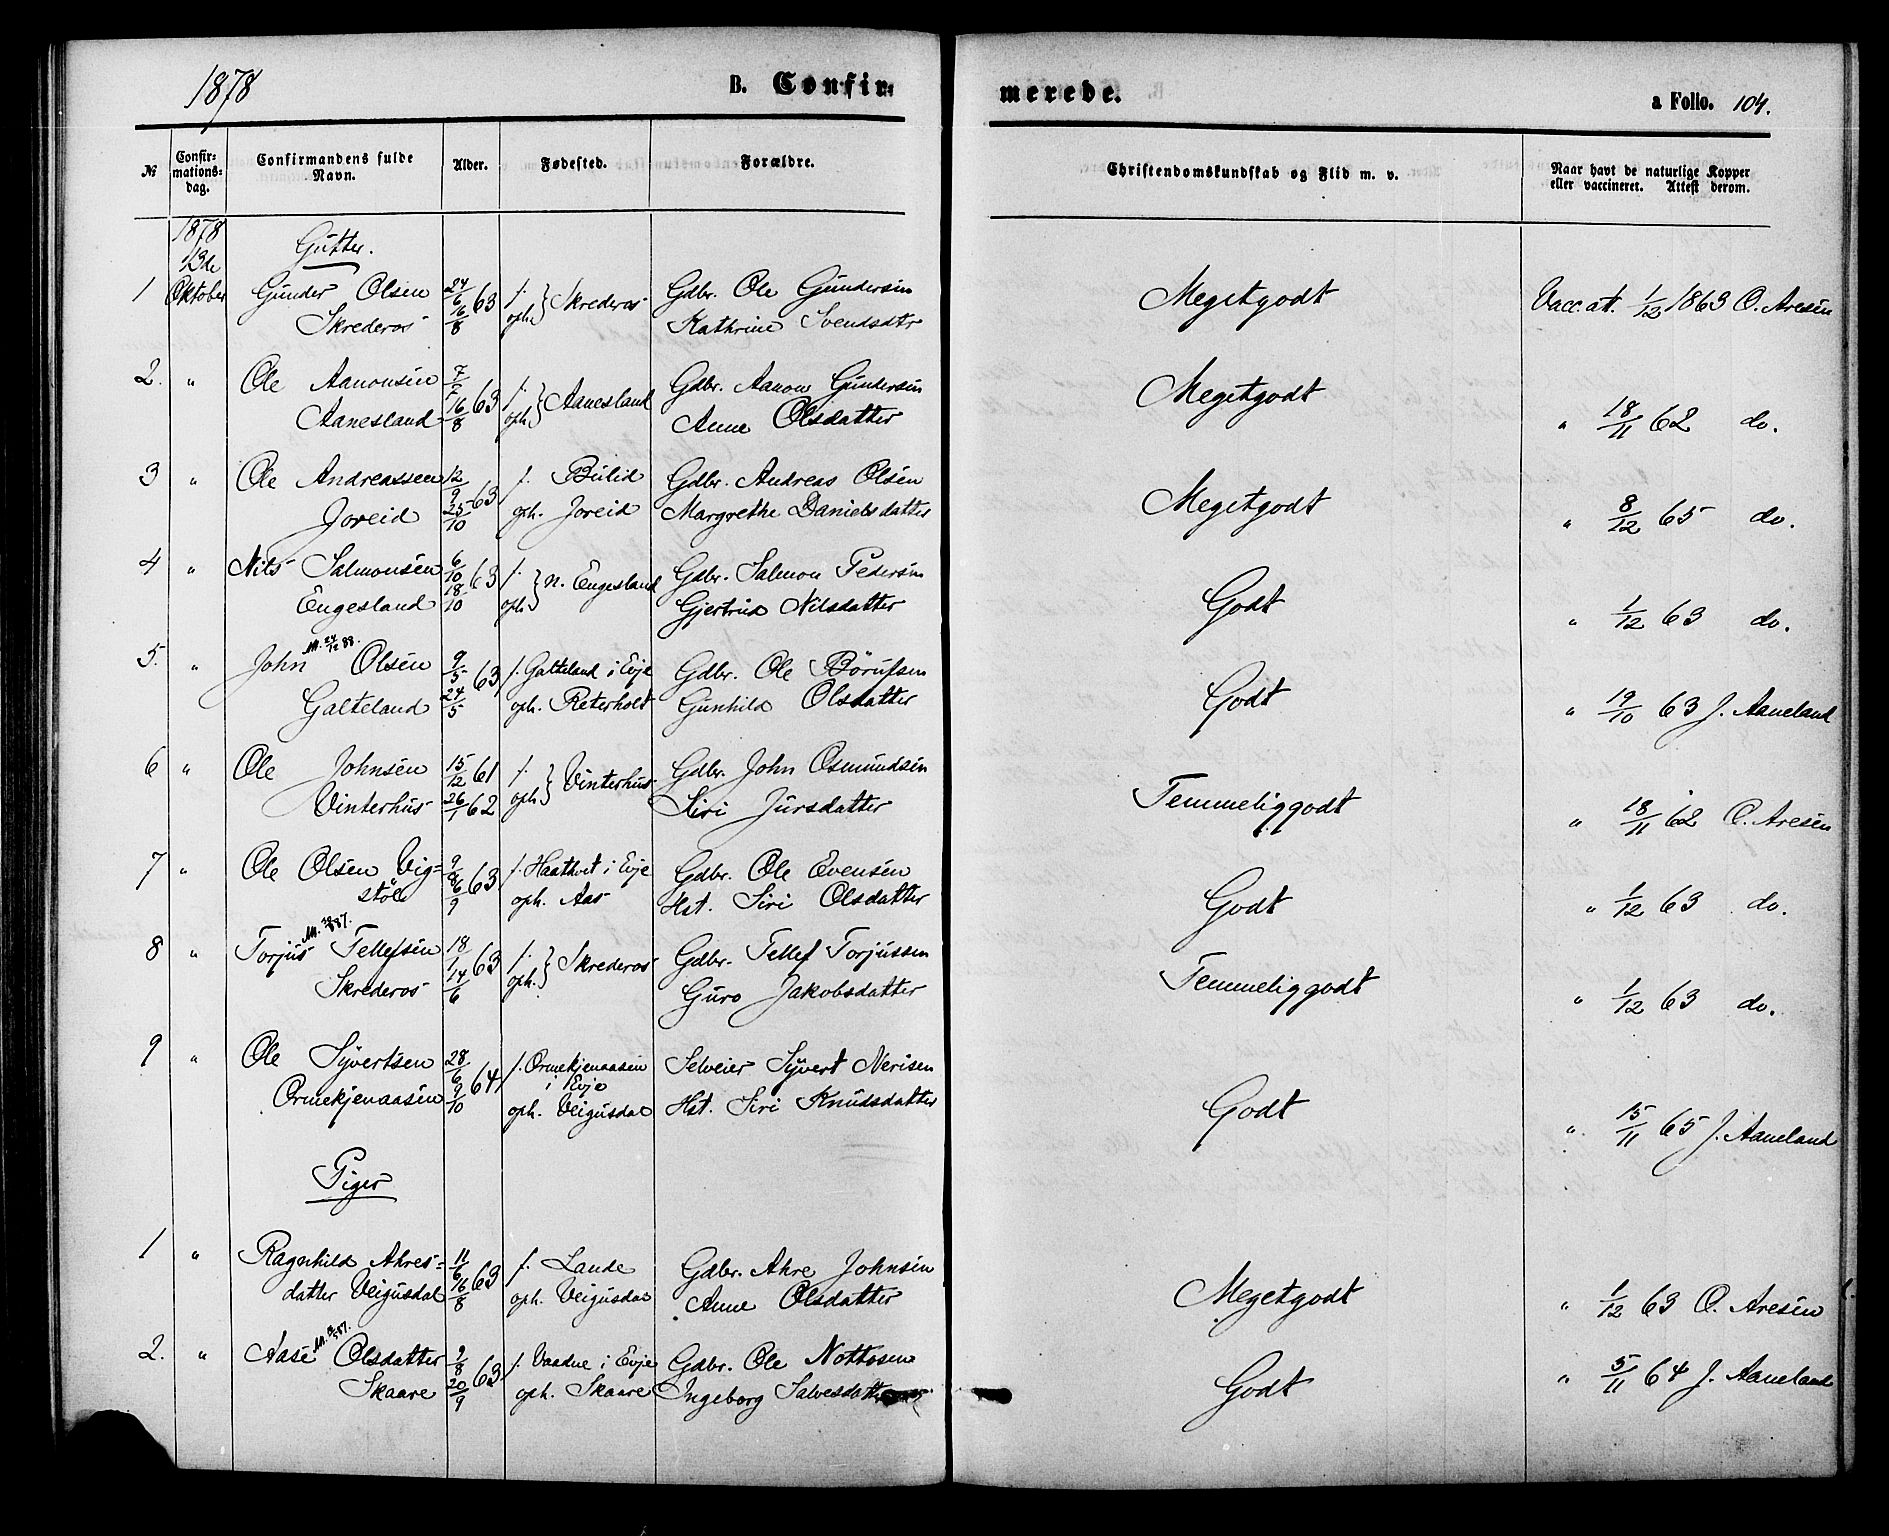 1878 B. Confir- merede. a Folio. 104.
№ Confir-mations-dag. Confirmandens fulde Navn. Alder. Fødested. Forældre. Christendomskundskab og Flid m. v. Naar havt de naturlige Kopper eller vaccineret. Attest derom.
1878
13de Gutter.
1 Oktober Gunder Olsen 24/6 63 f. } Skrederos Gdbr. Ole Gundersen Megetgodt Vacc. att. 1/12 1863 O. Aresen
Skrederos 16/8 oph. Kathrine Svendsdtr
2. " Ole Aanonsen 7/7 63 f. } Aanesland Gdbr. Aanon Gundersen Megetgodt
Aanesland 16/8 oph. Anne Olsdatter " 18/11 62 do.
3 " Ole Andreassen 12/9 63 f. Bulid Gdbr. Andreas Olsen Megetgodt
Joreid 25/10 oph. Joreid Margrethe Danielsdatter " 8/12 65 do.
4 " Nils Salmonsen 6/10 63 f. } n. Engesland Gdbr. Salmon Pedersen Godt
Engesland 18/10 oph. Gjertrud Nilsdatter " 1/12 63 do.
M. 24/12 88.
5. " John Olsen 9/5 63 f. Galteland i Evje Gdbr. Ole Börufsen Godt
Galteland 24/5 oph. Reterholt Gunhild Olsdatter " 19/10 63 J. Aaneland
6 " Ole Johnsen 15/12 61 f. } Vinterhus Gdbr. John Osmundsen Temmeliggodt
Vinterhus 26/1 62 oph. Siri Jursdatter " 18/11 62 O. Aresen
7 " Ole Olsen Vig= 9/8 63 f. Haathvet i Evje Gdbr. Ole Evensen Godt
stöl 6/9 oph. Aas Hst. Siri Olsdatter " 1/12 63 do.
8 " Torjus Tellefsen 18/1 63 f. } Skrederos Gdbr. Tellef Torjussen Temmeliggodt
Skrederos 14/6 oph. Guro Jakobsdatter " 1/12 63 do.
9 " Ole Syvertsen 28/6 64 f. Ormekjenaasen Selveier Syvert Nerisen
i Evje
Ormekjenaasen 9/10 oph. Veigusdal Hst. Siri Knudsdatter Godt " 15/11 65 J. Aaneland
Piger
1 " Ragnhild Ahres= 11/6 63 f. Lande Gdbr. Ahre Johnsen Megetgodt
datter Veigusdal 16/8 oph. Veigusdal Anne Olsdatter " 1/12 63 O. Aresen
2. " Aase Olsdatter 9/8 63 f. Vaadne i Evje Gdbr. Ole Nottosen Godt " 5/11 64 J. Aaneland
Skaare 20/9 oph. Skaare Ingeborg Salvesdatter